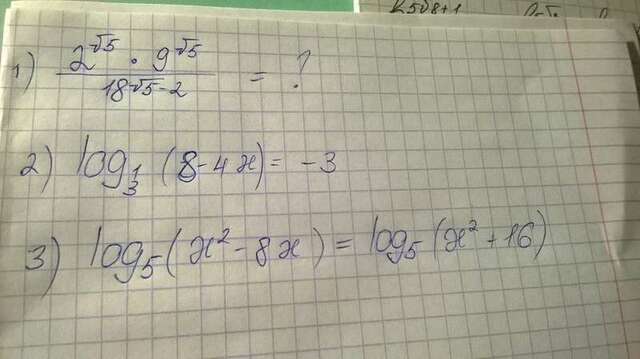 1) 2^√5 · 9^√5 / 18^√5-2 = ?
2) log_1/3 (8-4x) = -3
3) log_5 (x² - 8x) = log_5 (x² + 16)